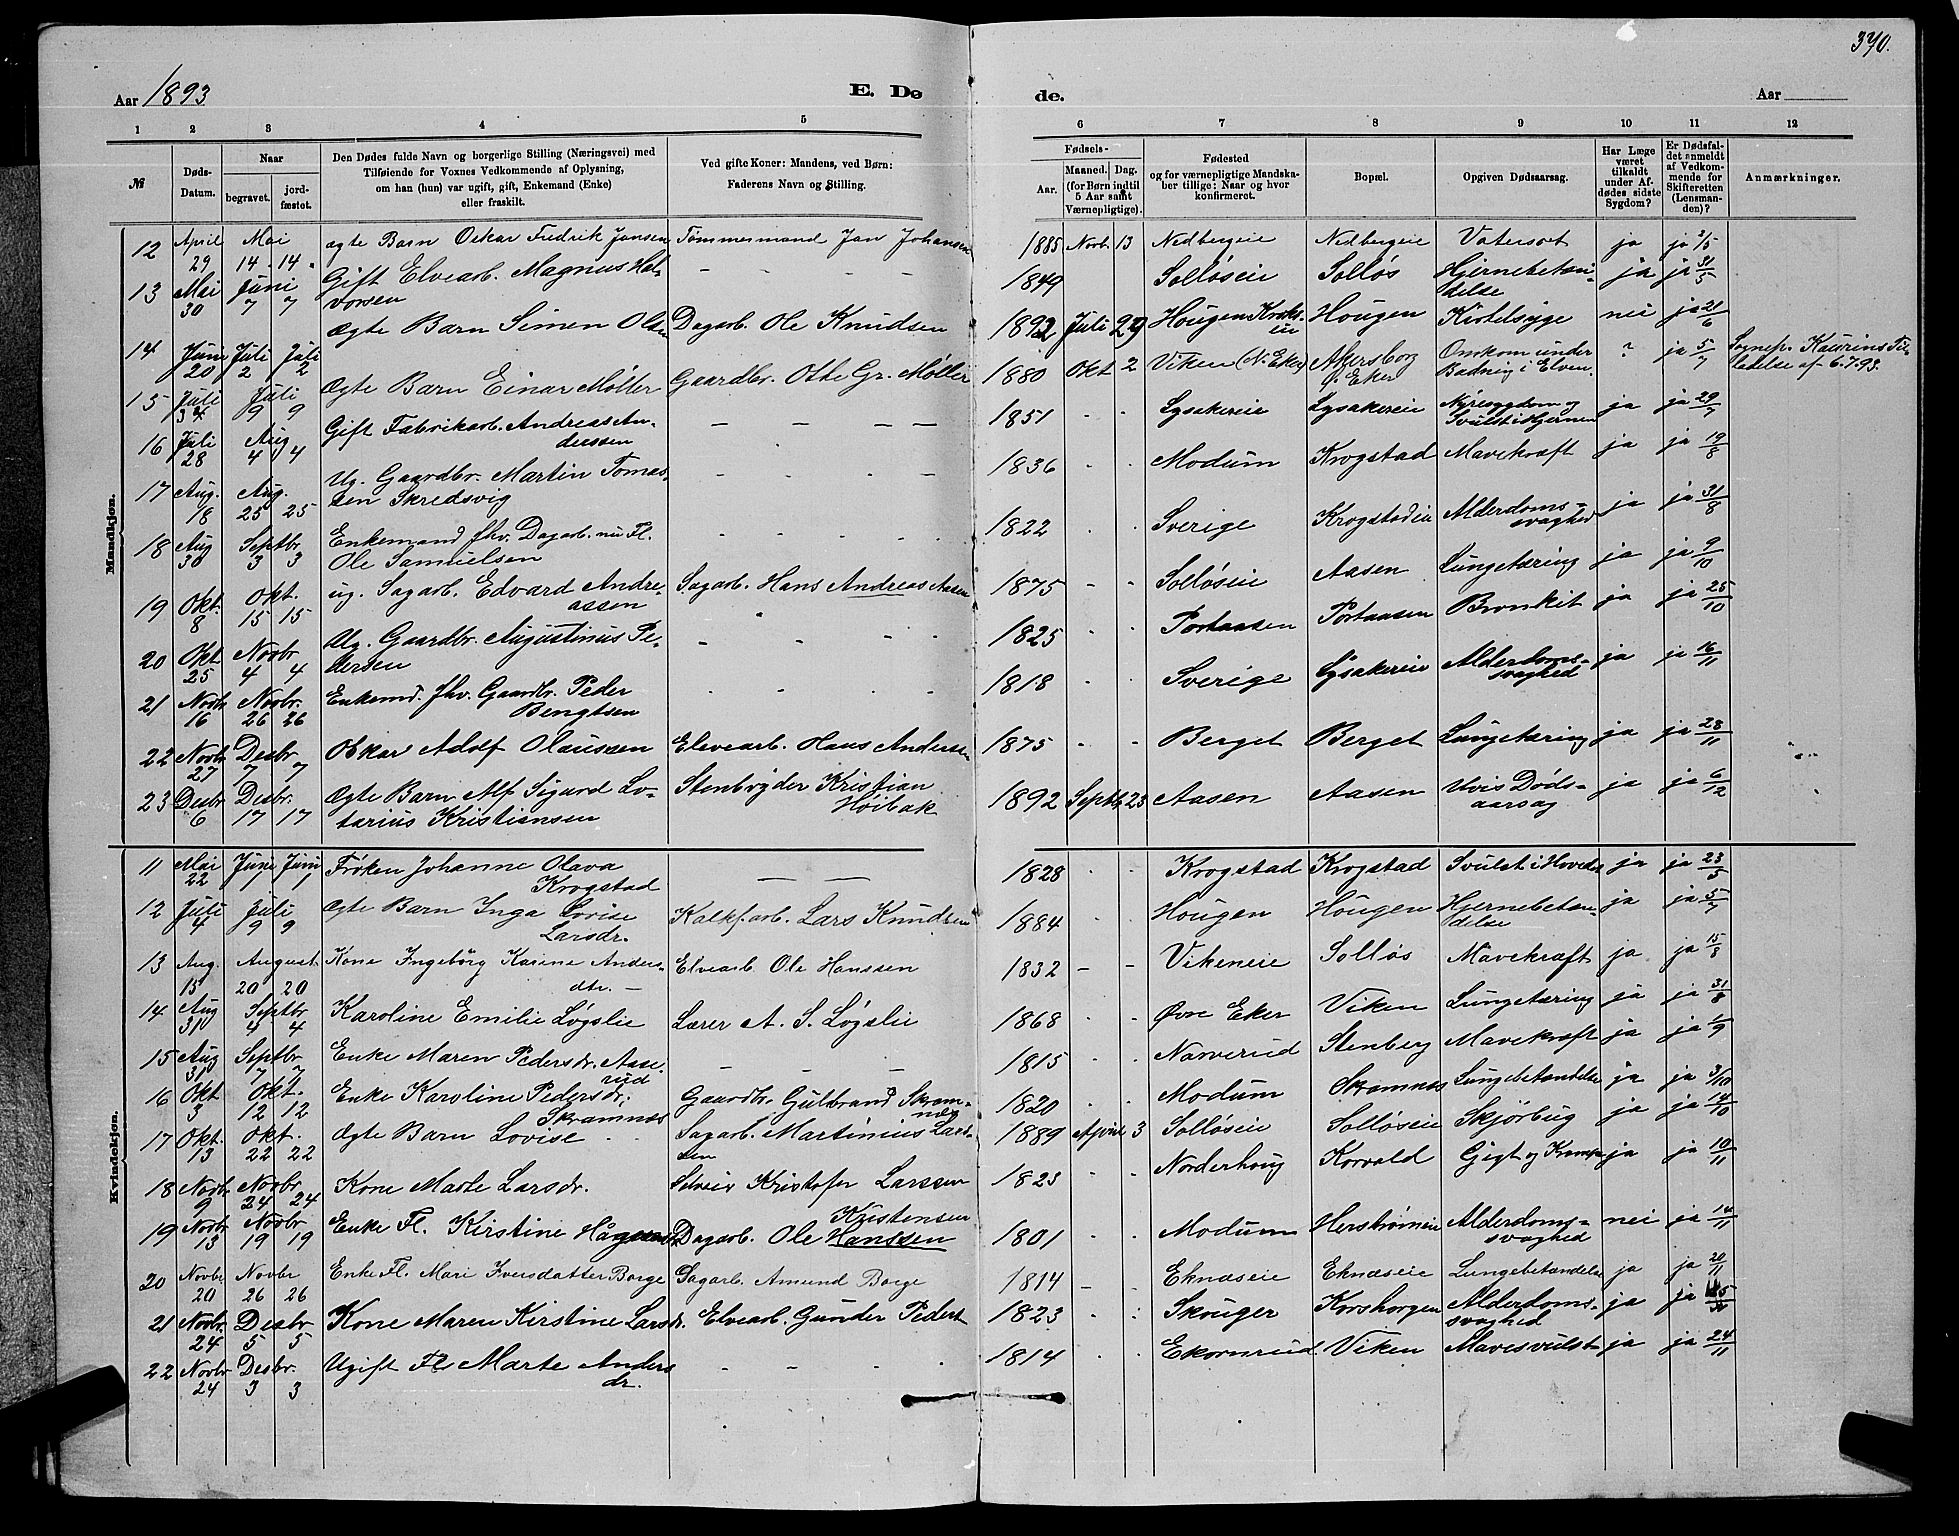 370.
Aar 1893
E. Dø
de.
Aar
1 2 3 4 5 6 7 8 9 10 11 12
№
Døds-Datum.
Naar
begravet.
jordfæstet.
Den Dødes fulde Navn og borgerlige Stilling (Næringsvei) med
Tilføiende for Voxnes Vedkommende af Oplysning,
om han (hun) var ugift, gift, Enkemand (Enke)
eller fraskilt.
Ved gifte Koner: Mandens, ved Børn:
Faderens Navn og Stilling.
Fødsels-
Aar.
Maaned. Dag.
(for Børn indtil
5 Aar samt
Værnepligtige).
Fødested
og for værnepligtige Mandska-
ber tillige: Naar og hvor
konfirmeret.
Bopæl.
Opgiven Dødsaarsag.
Har Læge
været
tilkaldt
under Af-
dødes sidste
Sygdom?
Er Dødsfal-
det anmeldt
af Vedkom-
mende for
Skifteretten
(Lensman-
den)?
Anmærkninger.
Mandkjøn.
12 April 29 Mai 14 - 14 - ægte Barn Oskar Fredrik Jansen Tømmermand Jan Johansen 1885 Novb. 13 Nedbergeie Nedbergeie Vatersot ja ja 2/5
13 Mai 30 Juni 7 7 Gift Elvearb. Magnus Hal-
vorsen - - - 1849 Solløseie Solløs Hjernebetæn-
delse ja ja 31/5
14 Juni 20 Juli 2 Juli 2 Ægte Barn Simen Olsen Dagarb. Ole Knudsen 1892 Juli 29 Hougen Hougen Kirtelsyge nei ja 21/6
15 Juli Juli 9 9 Ægte Barn Einar Møller Gaardbr. Otto Gr. Møller 1880 Okt 2 Viken (N. Eker) Akersborg
Ø. Eker Omkom under
Badnig i Elven. ? ja 5/7 Sognep. Kaurins Til-
ladelse af 6.7.93.
16 Juli 28 Aug 4 4 Gift Fabrikarb. Andreas An-
derssen - - - - 1851 - - Lysakereie Lysakereie Nyresygdom og
Svulst i Hjernen ja ja 29/7
17 Aug. 18 Aug. 25 25 Ug. Gaardbr. Martin Tomas-
sen Skredsvig - - - 1836 - - Modum Krogstad Mavekræft ja ja 19/8
18 Aug 30 Septbr 3 3 Enkemand fhv. Dagarb. nu Fl.
Ole Samuelsen - - - - 1822 - - Sverige Krogstadeie Alderdoms-
svaghed ja ja 31/8
19 Okt. 8 Okt. 15 15 ug. Sagarb. Edvard Andre-
assen Sagarb. Hans Andreas Aasen 1875 - - Solløseie Aasen Lungetæring ja ja 9/10
20 Okt 25 Novbr 4 4 Ug. Gaardbr. Augustinus Pe-
dersen - - - - 1825 - - Portaasen Portaasen Bronkit ja ja 25/10
21 Novb 16 Novbr. 26 26 Enkemd. fhv. Gaardbr. Peder
Bengtsen - - - - 1818 - - Sverige Lysakereie Alderdoms-
svaghed ja ja 16/11
22 Novb 27 Desbr 7 7 Oskar Adolf Olaussen Elvearb. Hans Andersen 1875 - - Berget Berget Lungetæring ja ja 28/11
23 Desbr 6 Desbr. 17 17 Ægte Barn Alf Sigurd Lo-
tarius Kristiansen Stenbryder Kristian
Høibak 1892 Septb 23 Aasen Aasen Uvis Døds-
aarsag ja ja 6/12
Kvindekjøn.
11 Mai 22 Juni 1 Juni 1 Frøken Johanne Olava
Krogstad - - 1828 - - Krogstad Krogstad Svulst i Hovedet ja ja 23/5
12 Juli 4 Juli 9 9 Ægte Barn Inga Lovise
Larsdr. Kalkf.arb. Lars Knudsen 1884 - - Hougen Hougen Hjernebetæn-
delse ja ja 5/7
13 Aug. 15 August 20 20 Kone Ingebørg Karine Anders-
dtr. - Elvearb. Ole Hanssen 1832 - - Vikeneie Solløs Mavekræft ja ja 15/8
14 Aug 31 Septbr 4 4 Karoline Emilie Løgslie Lærer A. S. Løgslie 1868 - - Øvre Eker Viken Lungetæring ja ja 31/8
15 Aug 31 Septbr 7 7 Enke Maren Pedersdr. Aase-
rud - - - 1815 - - Narverud Stenberg Mavekræft ja ja 1/9
16 Okt 3 Okt. 12 12 Enke Karoline Pedersdr.
Skramnæs Gaardbr. Gulbrand Skram-
næs 1820 - - Modum Skramnæs Lungebetændelse ja ja 3/10
17 Okt. 13 Okt. 22 22 Ægte Barn Lovise - - Sagarb. Martinius Lars-
sen 1889 April 3 Solløseie Solløseie Skjørbug ja ja 14/10
18 Novbr 9 Novbr 24 24 Kone Marte Larsdr. Selveier Kristofer Larssen 1823 - - Norderhoug Korvald Gigt og Krampe ja ja 10/11
19 Novbr 13 Novbr 19 19 Enke Fl. Kirstine Dagarb. Ole Hanssen
Kristensen 1801 - - Modum Herstrømeie Alderdoms-
svaghed nei ja 14/11
20 Novbr 20 Novbr 26 26 Enke Fl. Mari Iversdatter Borge Sagarb. Amund Borge 1814 - - Eknæseie Eknæseie Lungebetændelse ja ja 20/11
21 Novbr. 24 Desbr 5 5 Kone Maren Kirstine Larsdr. Elvearb. Gunder Peders 1823 - : Skouger Korshorgen Alderdoms-
svaghed ja ja
22 Novbr 24 Desbr. 3 3 Ugift Fl Marte Anders
dr. - - - - 1814 - - Ekornrud Viken Mavesvulst ja ja 24/11